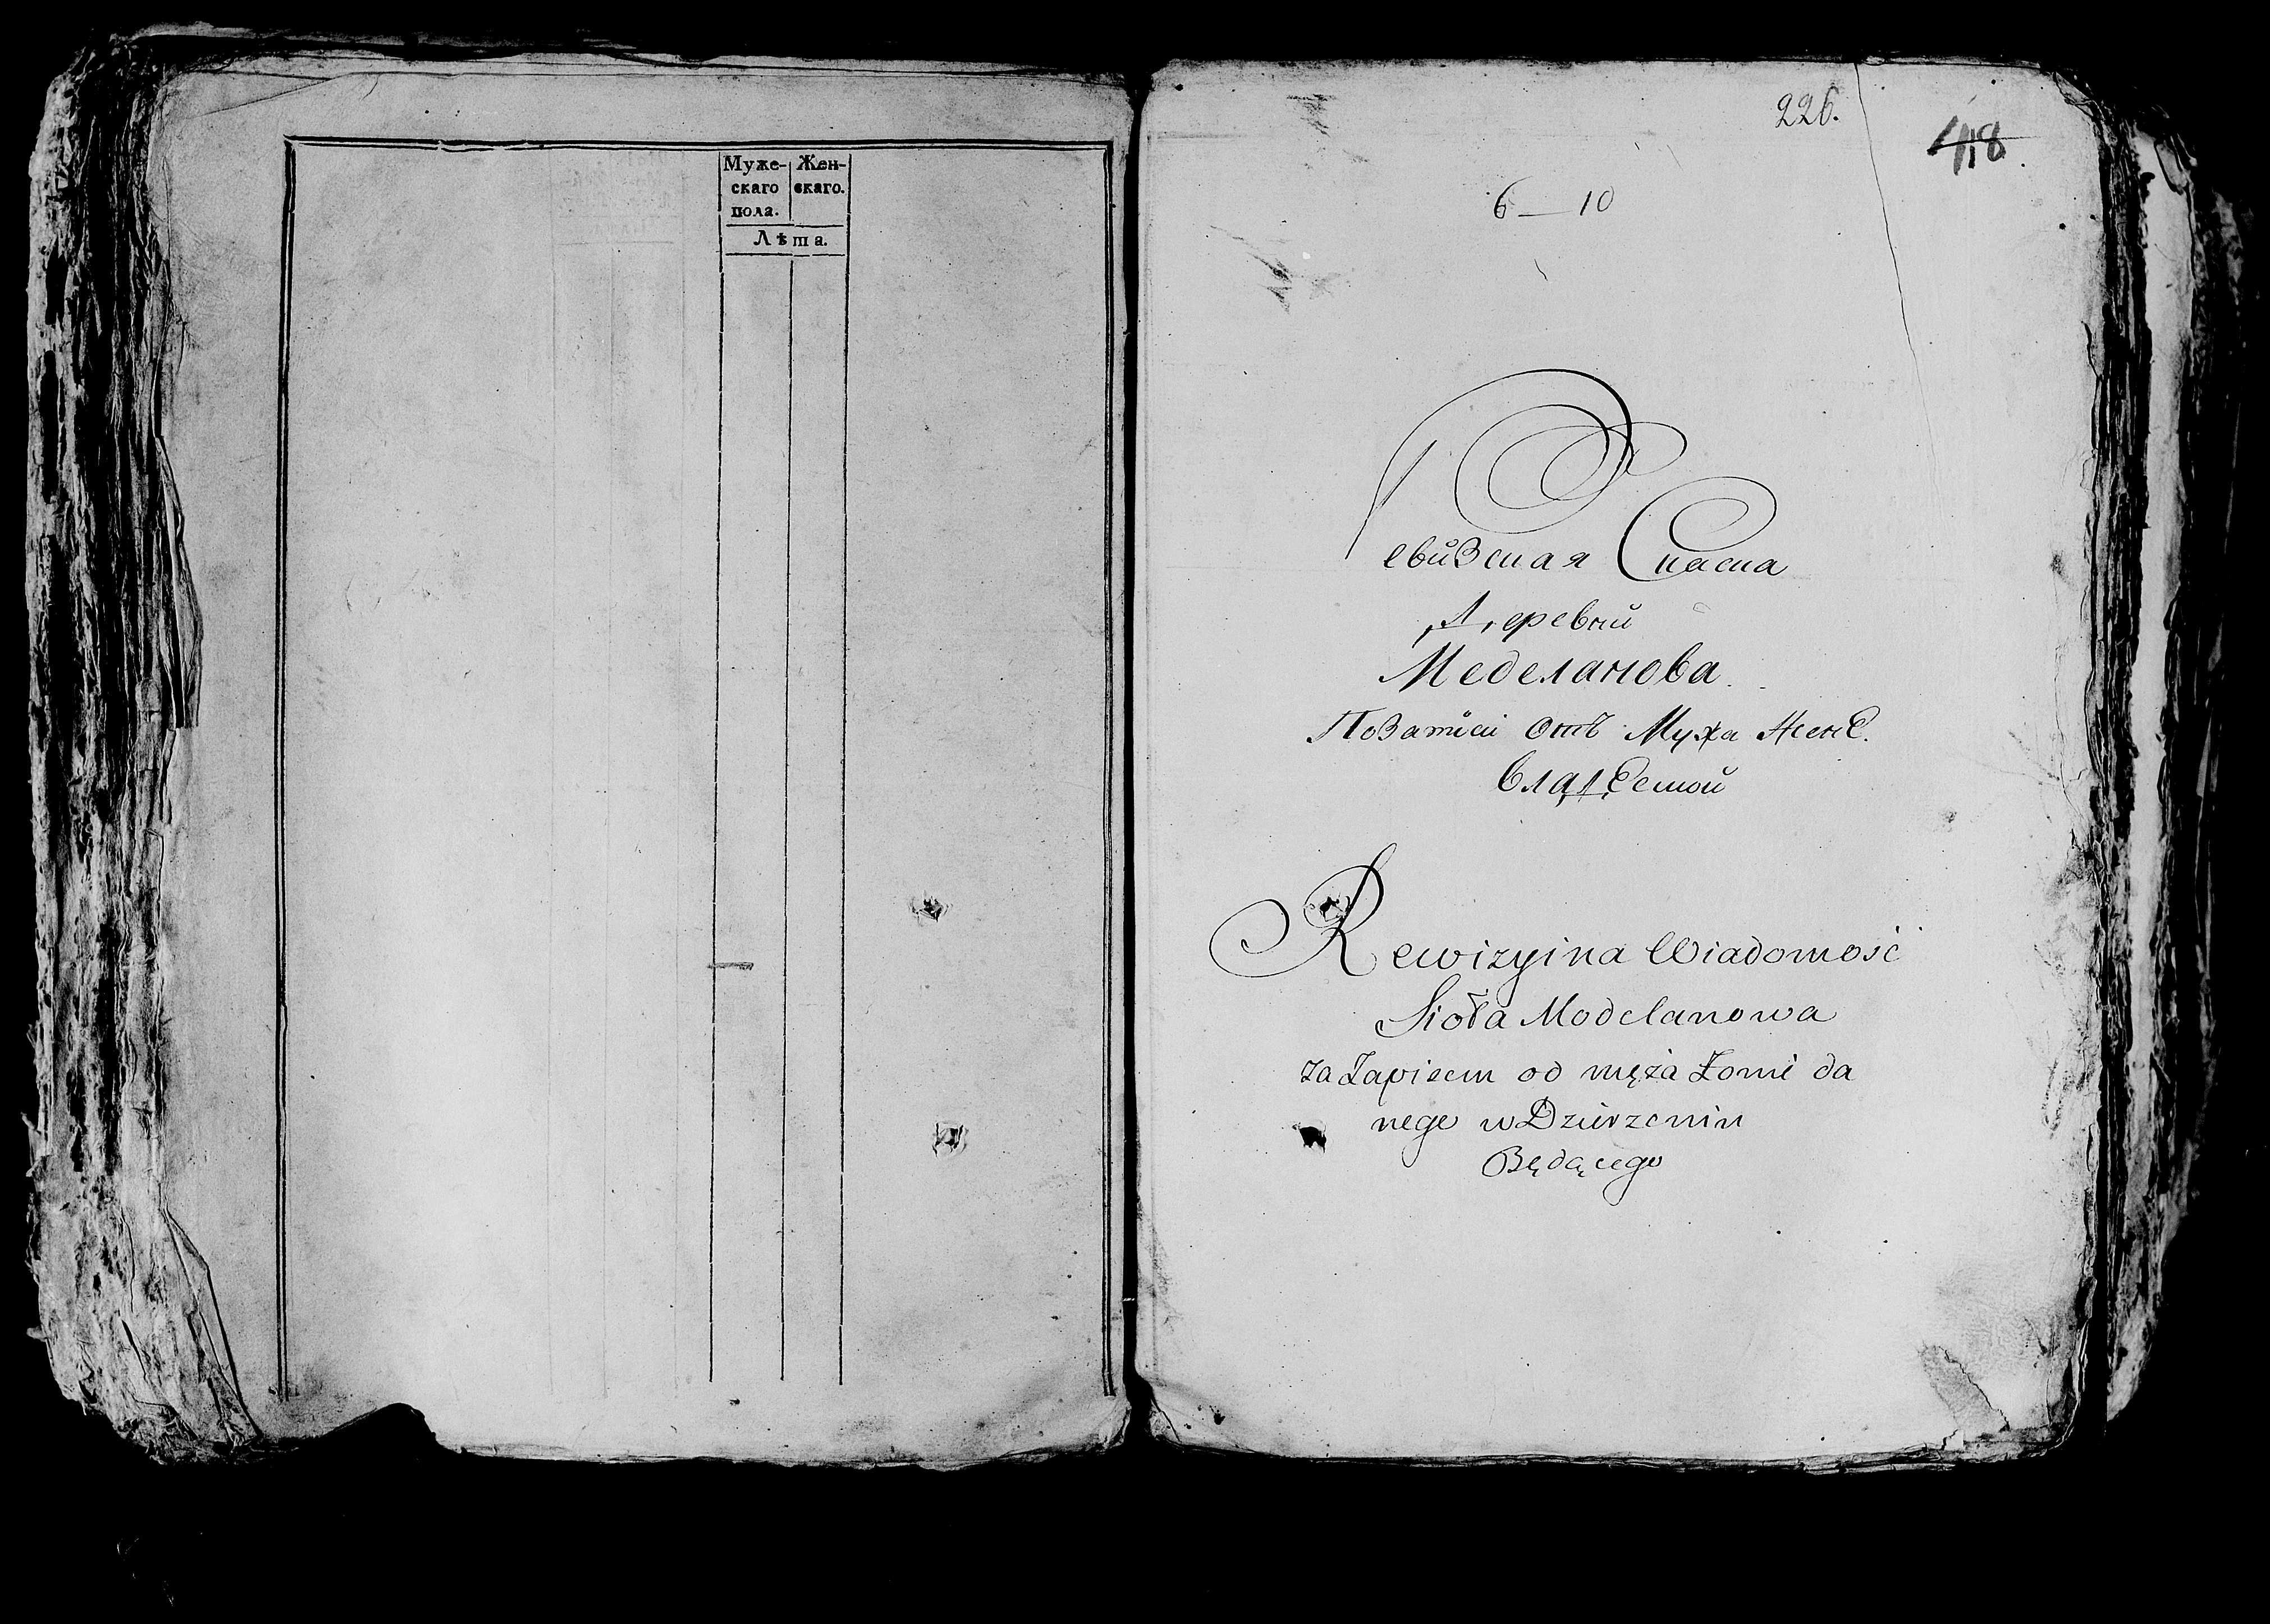 Муже- Жен-
скаго скаго.
пола.
Лѣта.
226.
418.
6 — 10
Ревизская Спаска
Деревни
Меделанова
Позаписи отъ Мужа Жене
владеемой
Rewizyina Wiadomość
Sioła Modelanowa
za Zapisem od męża Żonie da
nego w Dzierżenin
Będącego